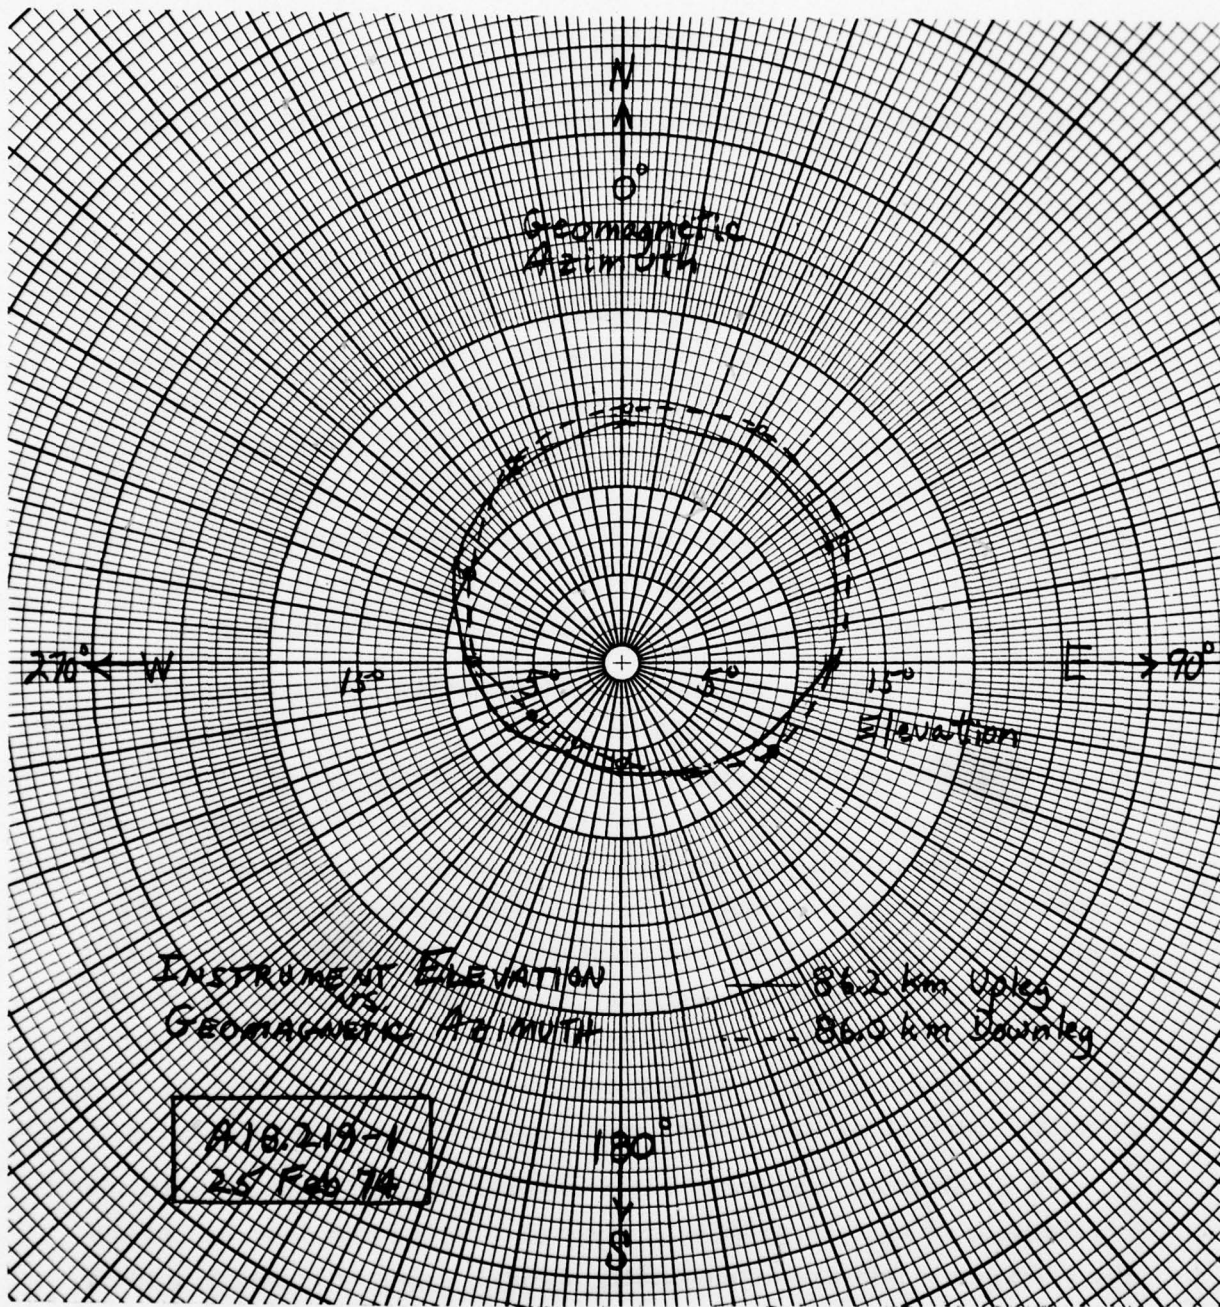 N
0°
Geomagnetic
Azimuth
270° ← W
15°
5°
5°
15°
E → 90°
Elevation
INSTRUMENT ELEVATION
VS.
GEOMAGNETIC AZIMUTH
86.2 km Upleg
86.0 km Downleg
A18.219-1
25 Feb 74
180°
S